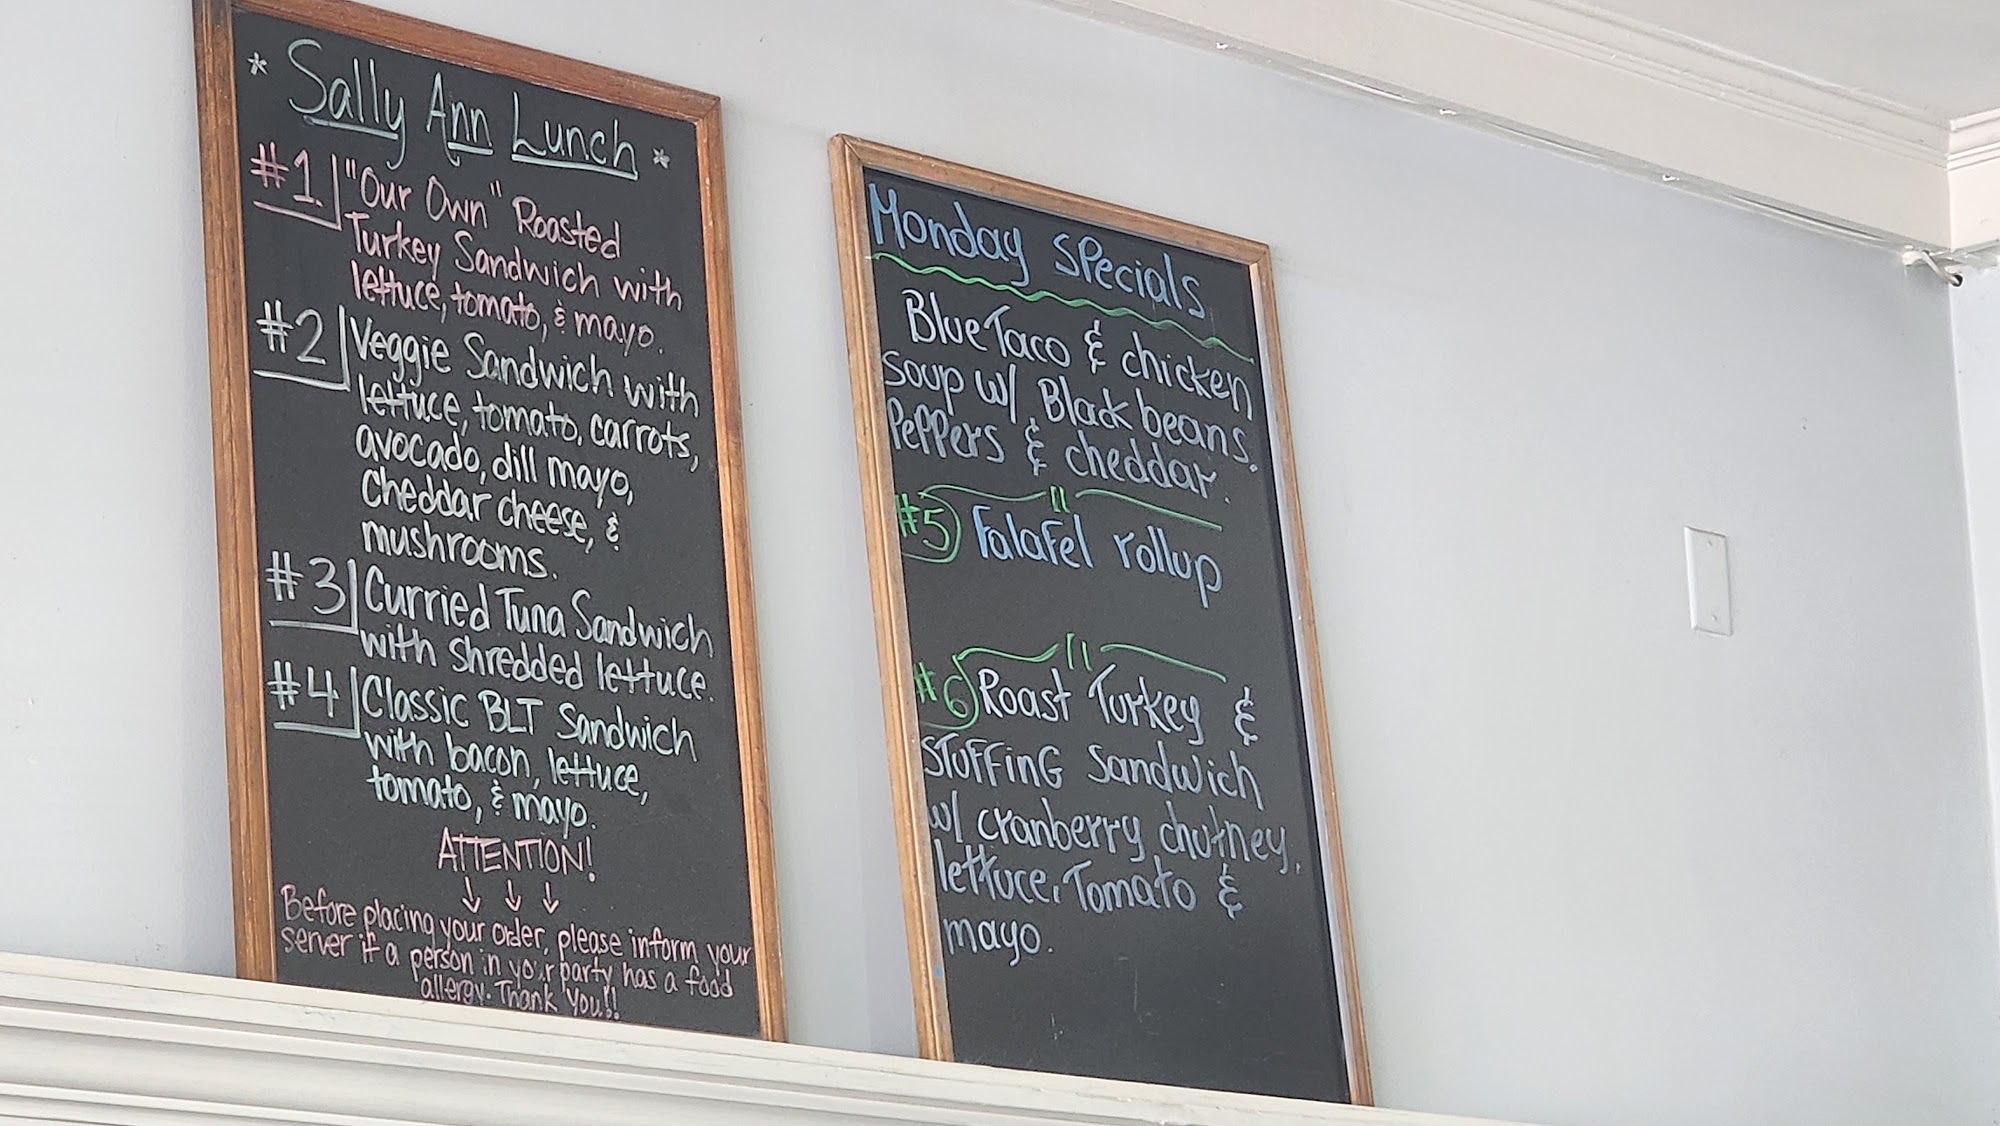 * Sally Ann Lunch *
#1. "Our Own" Roasted
Turkey Sandwich with
lettuce, tomato, & mayo.
#2 Veggie Sandwich with
lettuce, tomato, carrots,
avocado, dill mayo,
Cheddar cheese, &
mushrooms.
#3 Curried Tuna Sandwich
with shredded lettuce.
#4 Classic BLT Sandwich
with bacon, lettuce,
tomato, & mayo.
ATTENTION!
↓ ↓ ↓
Before placing your order, please inform your
server if a person in your party has a food
allergy. Thank You!!
Monday Specials
Blue Taco & chicken
Soup w/ Black beans.
Peppers & cheddar.
#5 Falafel rollup
#6 Roast Turkey &
STUFFING Sandwich
w/ cranberry chutney,
lettuce, Tomato &
mayo.